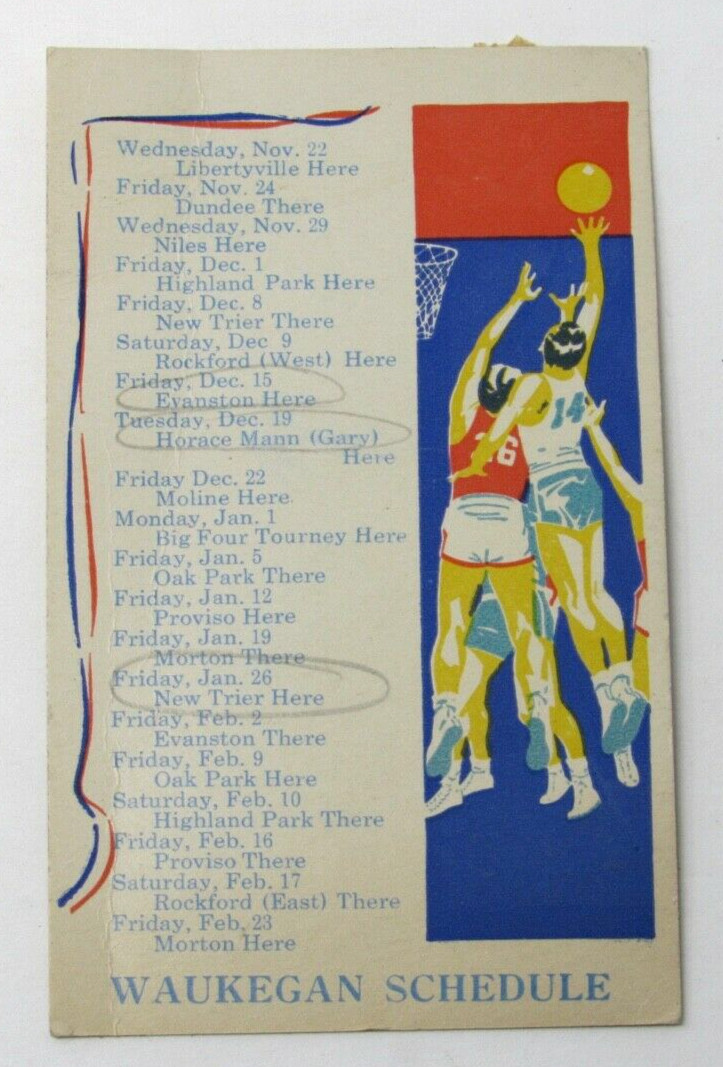 Wednesday, Nov. 22
Libertyville Here
Friday, Nov. 24
Dundee There
Wednesday, Nov. 29
Niles Here
Friday, Dec. 1
Highland Park Here
Friday, Dec. 8
New Trier There
Saturday, Dec 9
Rockford (West) Here
Friday, Dec. 15
Evanston Here
Tuesday, Dec. 19
Horace Mann (Gary)
Here
Friday Dec. 22
Moline Here
Monday, Jan. 1
Big Four Tourney Here
Friday, Jan. 5
Oak Park There
Friday, Jan. 12
Proviso Here
Friday, Jan. 19
Morton There
Friday, Jan. 26
New Trier Here
Friday, Feb. 2
Evanston There
Friday, Feb. 9
Oak Park Here
Saturday, Feb. 10
Highland Park There
Friday, Feb. 16
Proviso There
Saturday, Feb. 17
Rockford (East) There
Friday, Feb. 23
Morton Here
14
WAUKEGAN SCHEDULE